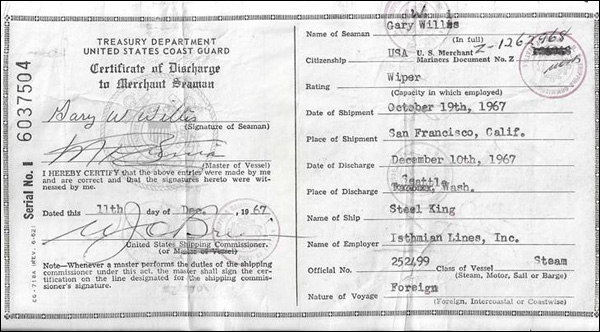 Serial No. I 6037504
CG-718A (REV. 6-62)
TREASURY DEPARTMENT
UNITED STATES COAST GUARD
Certificate of Discharge
to Merchant Seaman
Gary W Willis
(Signature of Seaman)
(Master of Vessel)
I HEREBY CERTIFY that the above entries were made by me
and are correct and that the signatures hereto were wit-
nessed by me.
Dated this 11th day of Dec. , 1967
United States Shipping Commissioner.
(or Master of Vessel)
Note—Whenever a master performs the duties of the shipping
commissioner under this act, the master shall sign the certi-
fication on the line designated for the shipping commis-
sioner's signature.
W i
Name of Seaman Gary Willis
(In full)
Citizenship USA U. S. Merchant Mariners Document No. Z Z-1262968
Rating Wiper
(Capacity in which employed)
Date of Shipment October 19th, 1967
Place of Shipment San Francisco, Calif.
Date of Discharge December 10th, 1967
Place of Discharge Seattle Wash.
Name of Ship Steel King
Name of Employer Isthmian Lines, Inc.
Official No. 252499 Class of Vessel Steam
(Steam, Motor, Sail or Barge)
Nature of Voyage Foreign
(Foreign, Intercoastal or Coastwise)